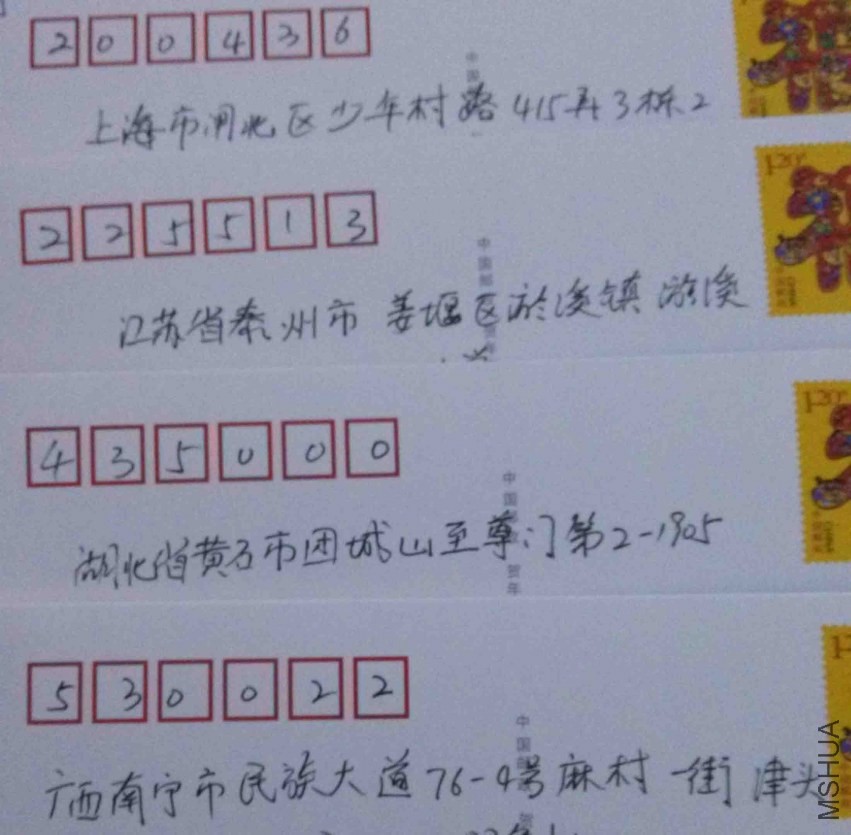 200436
上海市闸北区少年村路415弄3栋2
225513
江苏省泰州市 姜堰区淤溪镇 淤溪
435000
湖北省黄石市团城山至尊门第2-1905
530022
广西南宁市民族大道76-9号麻村一街 津头
1.20
1.20
MSHUA